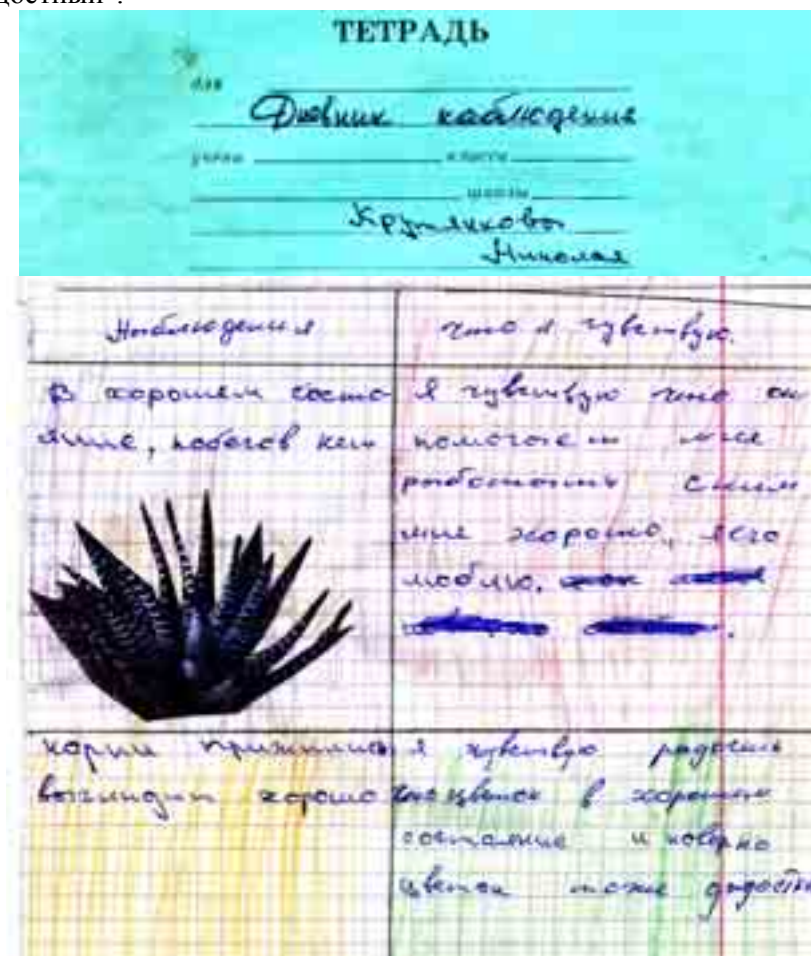 ТЕТРАДЬ
для
Дневник наблюдение
учени класса
школы
Николая
Наблюдения
что я чувствую.
В хорошем состо
яние, побегов нет
я чувствую что он
помогает мне
работать с ним
мне хорошо, я его
люблю.
корни прижились
выгиндит хорошо
я чувствую радость
что цветок в хорошем
состояние и наверно
цветок тоже